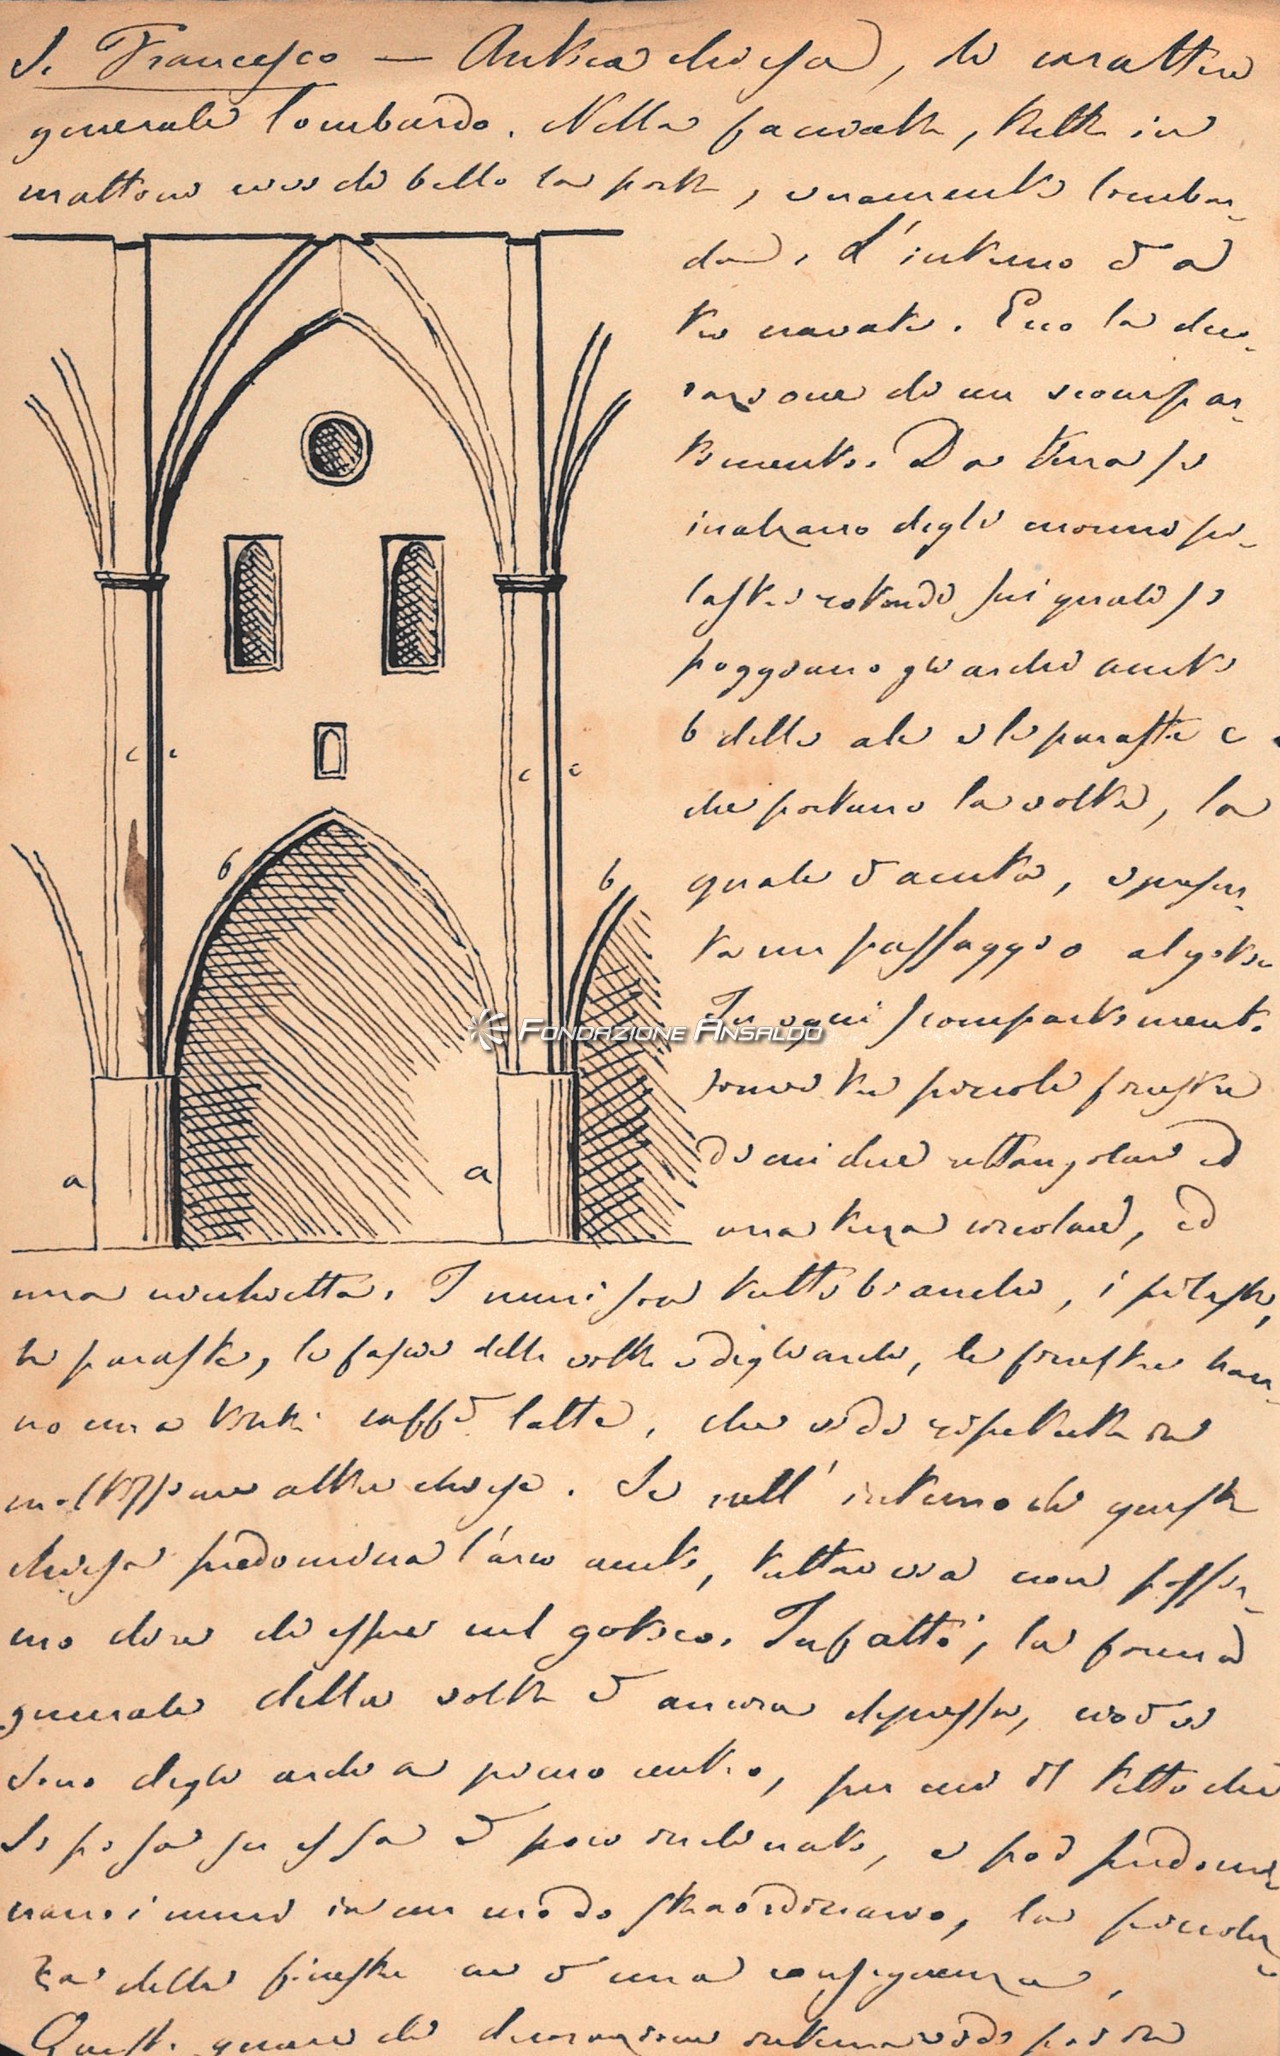 S. Francesco — Antica chiesa, di carattere
generale lombardo. Nella facciata, tutta in
mattoni ci è di bello la porta, veramente lombar-
da. L'interno è a
tre navate. Ecco la deco-
razione di un scompar-
timento. Da terra si
inalzano degli enormi pi-
lastri rotondi sui quali si
poggiano gli archi acuti
b delle ale e le paraste c
che portano la volta, la
quale è acuta, e presen-
ta un passaggio al gotico
In ogni scompartimento
sonvi tre piccole finestre
di cui due rettangolari ed
una terza circolare, ed
una nicchietta. I muri son tutti bianchi, i pilastri,
le paraste, le fasce delle volte e degli archi, le finestre han-
no una tinta caffè latte, che vidi ripetuta in
moltissime altre chiese. Se nell'interno di questa
chiesa predomina l'arco acuto, tuttavia non possia-
mo dire di essere nel gotico. Infatti, la forma
generale della volta è ancora depressa, cioè vi
sono degli archi a pieno centro, per cui il tetto che
si posa su essa è poco inclinato, e poi predomi-
nano i muri in un modo straordinario, la piccolez-
za delle finestre ne è una conseguenza.
Questo genere di decorazione interna vidi poi in
a
a
b
b
c
c
c
c
Fondazione Ansaldo